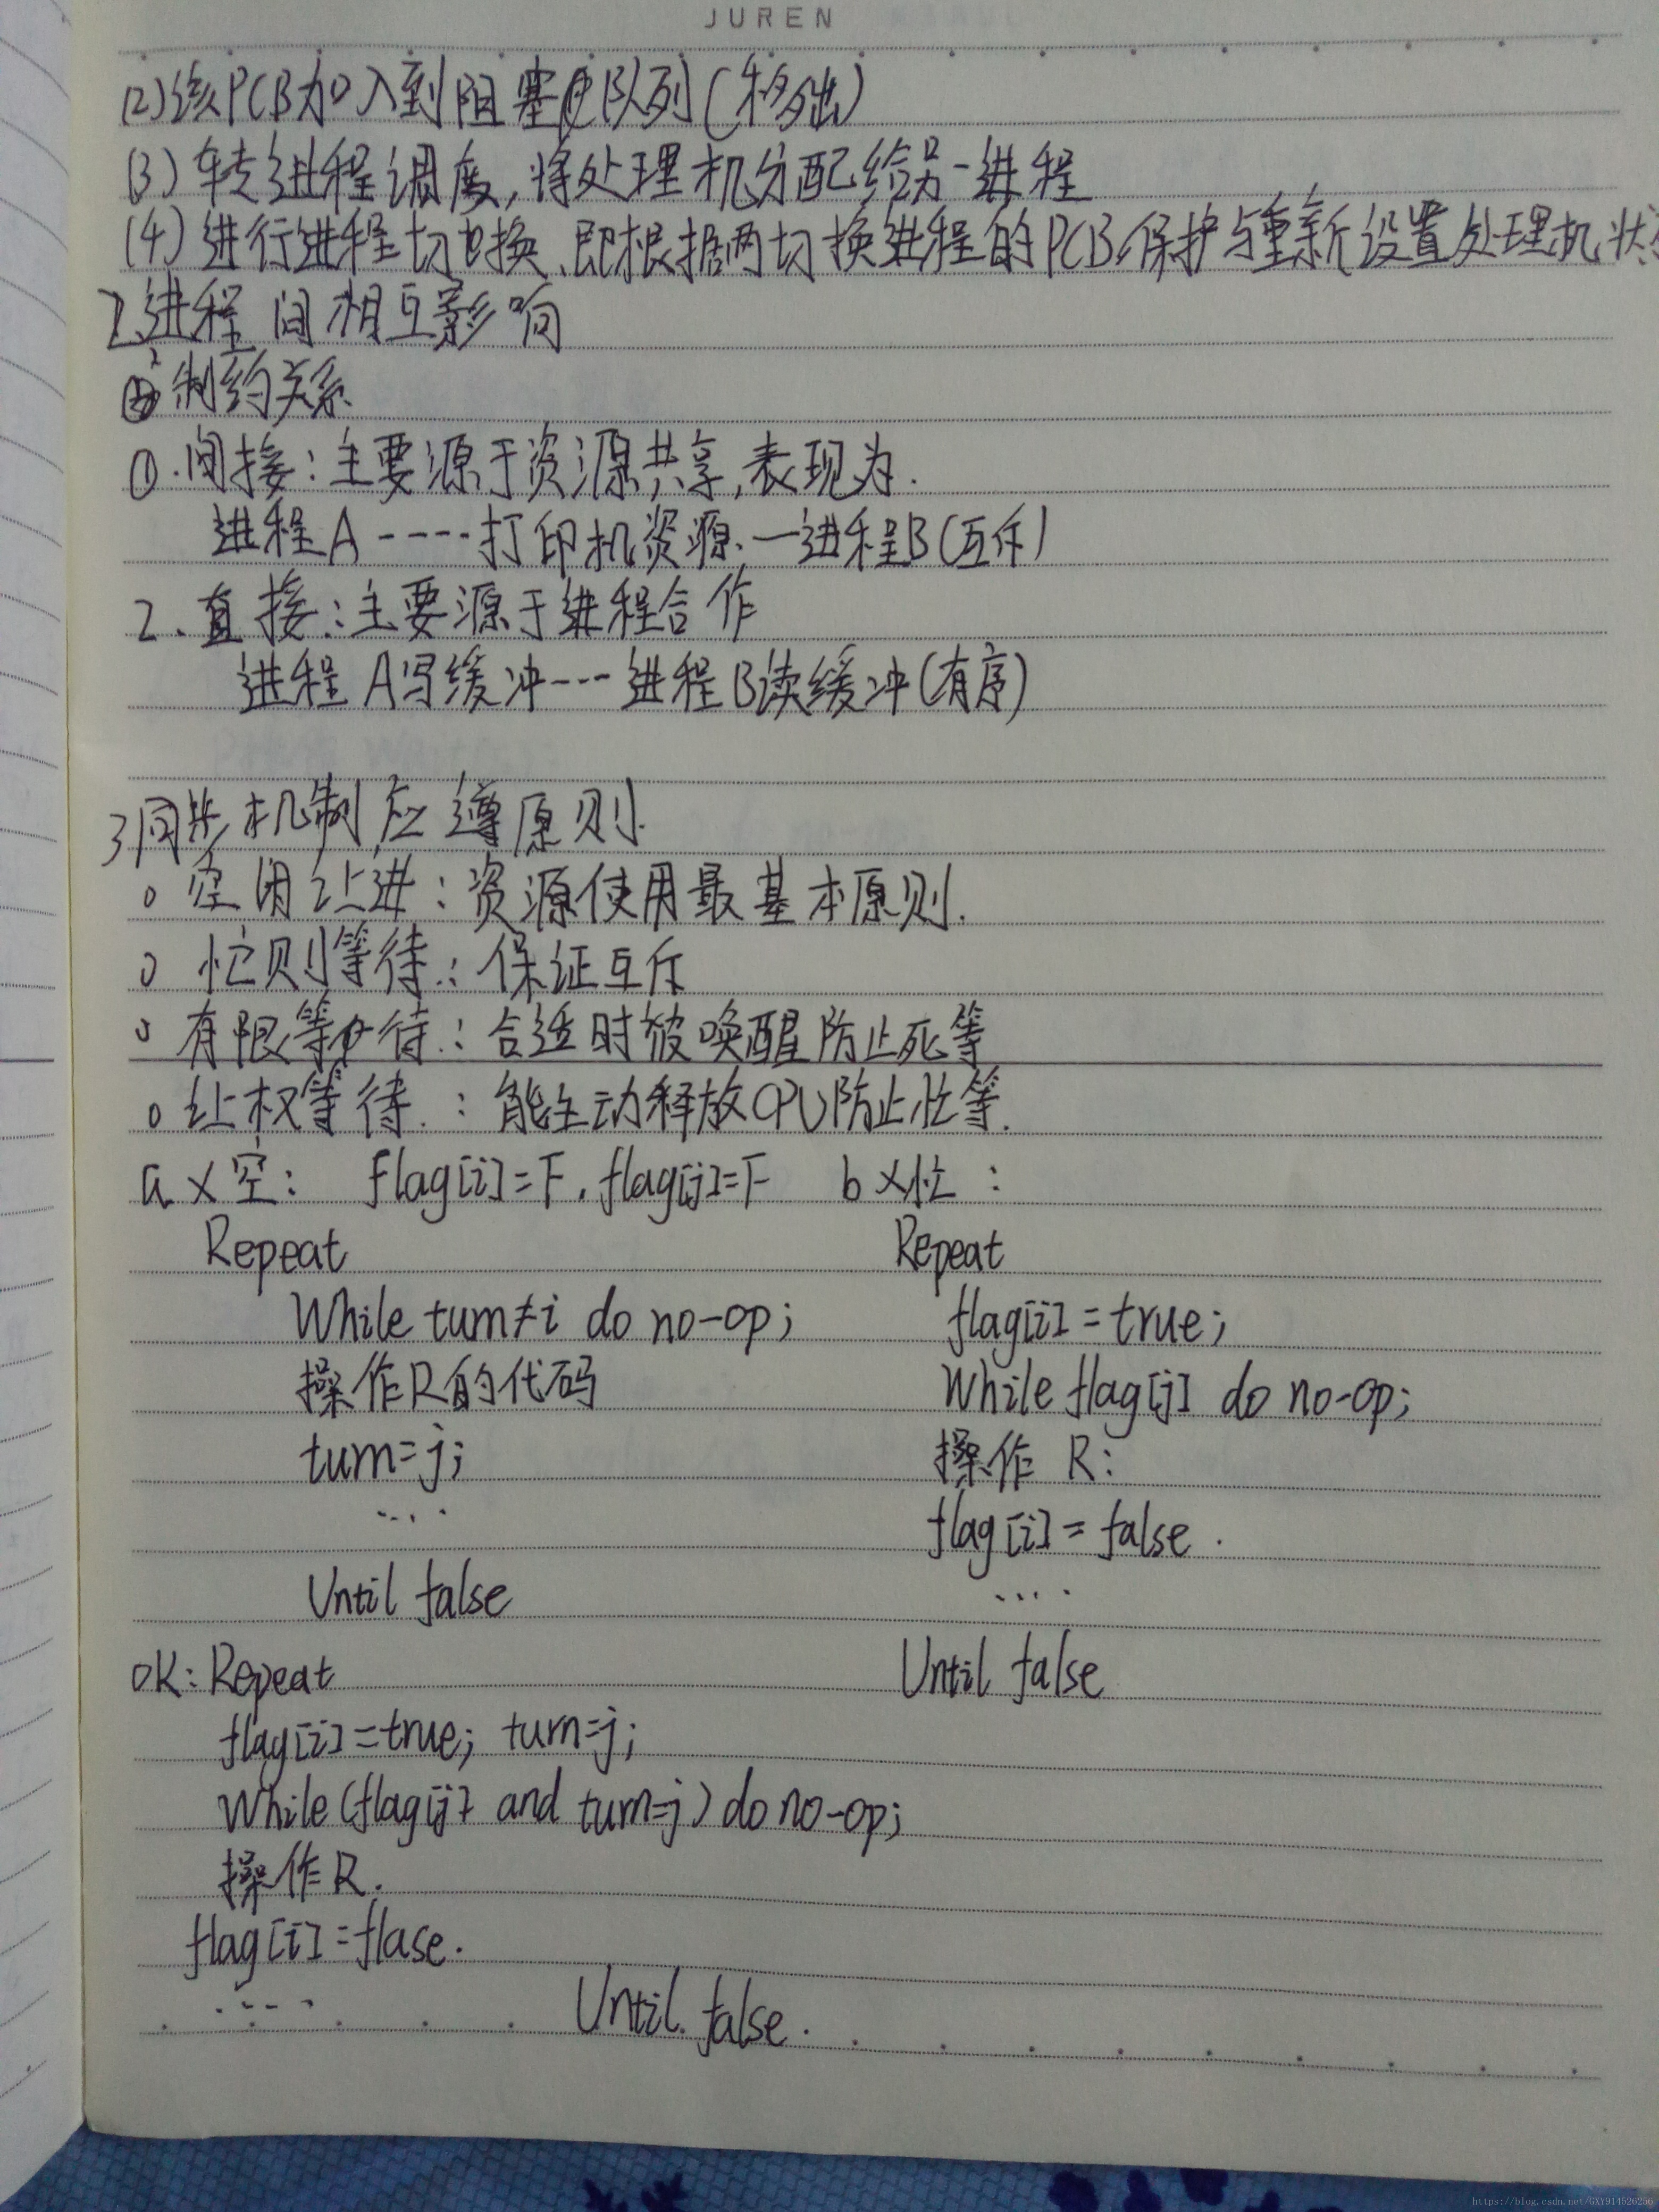 JUREN
(2)该PCB加入到阻塞队列(移出)
(3)转进程调度,将处理机分配给另一进程
(4)进行进程切换、即根据两切换进程的PCB,保护与重新设置处理机状
2进程间相互影响
制约关系
①.间接:主要源于资源共享,表现为.
进程A-----打印机资源.一进程B(互斥)
2.直接:主要源于进程合作
进程A写缓冲---进程B读缓冲(有序)
3同步机制应遵原则.
o 空闲让进:资源使用最基本原则.
o 忙则等待:保证互斥
o 有限等待:合适时被唤醒防止死等
o 让权等待.:能主动释放CPU防止忙等.
a x空: flag[i]=F,flag[j]=F b x忙:
Repeat Repeat
While turn≠i do no-op; flag[i]=true;
操作R的代码 While flag[j] do no-op;
turn=j; 操作 R:
... flag[i]=false.
Until false ....
OK:Repeat Until false
flag[i]=true; turn=j;
While(flag[j] and turn=j)do no-op;
操作R.
flag[i]=flase.
..... Until false.
https://blog.csdn.net/GXY914526256